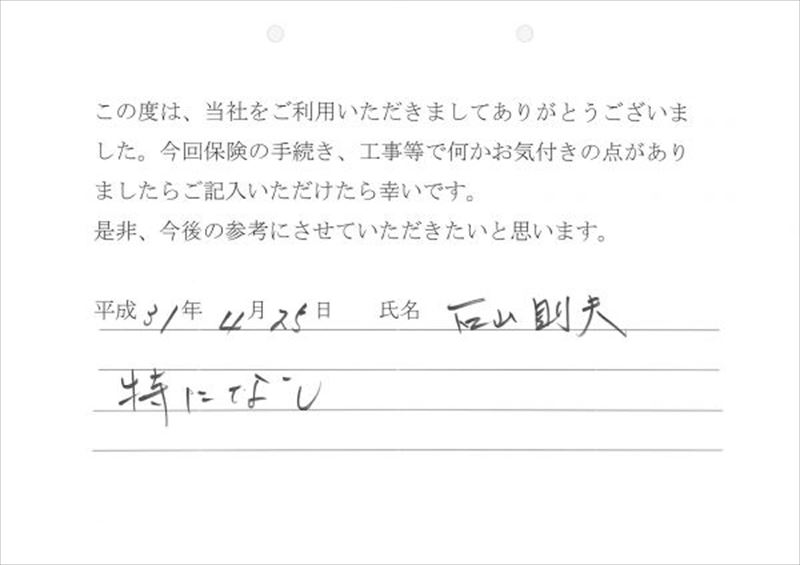 この度は、当社をご利用いただきましてありがとうございま
した。今回保険の手続き、工事等で何かお気付きの点があり
ましたらご記入いただけたら幸いです。
是非、今後の参考にさせていただきたいと思います。
平成31年 4月25日 氏名 石山則夫
特になし